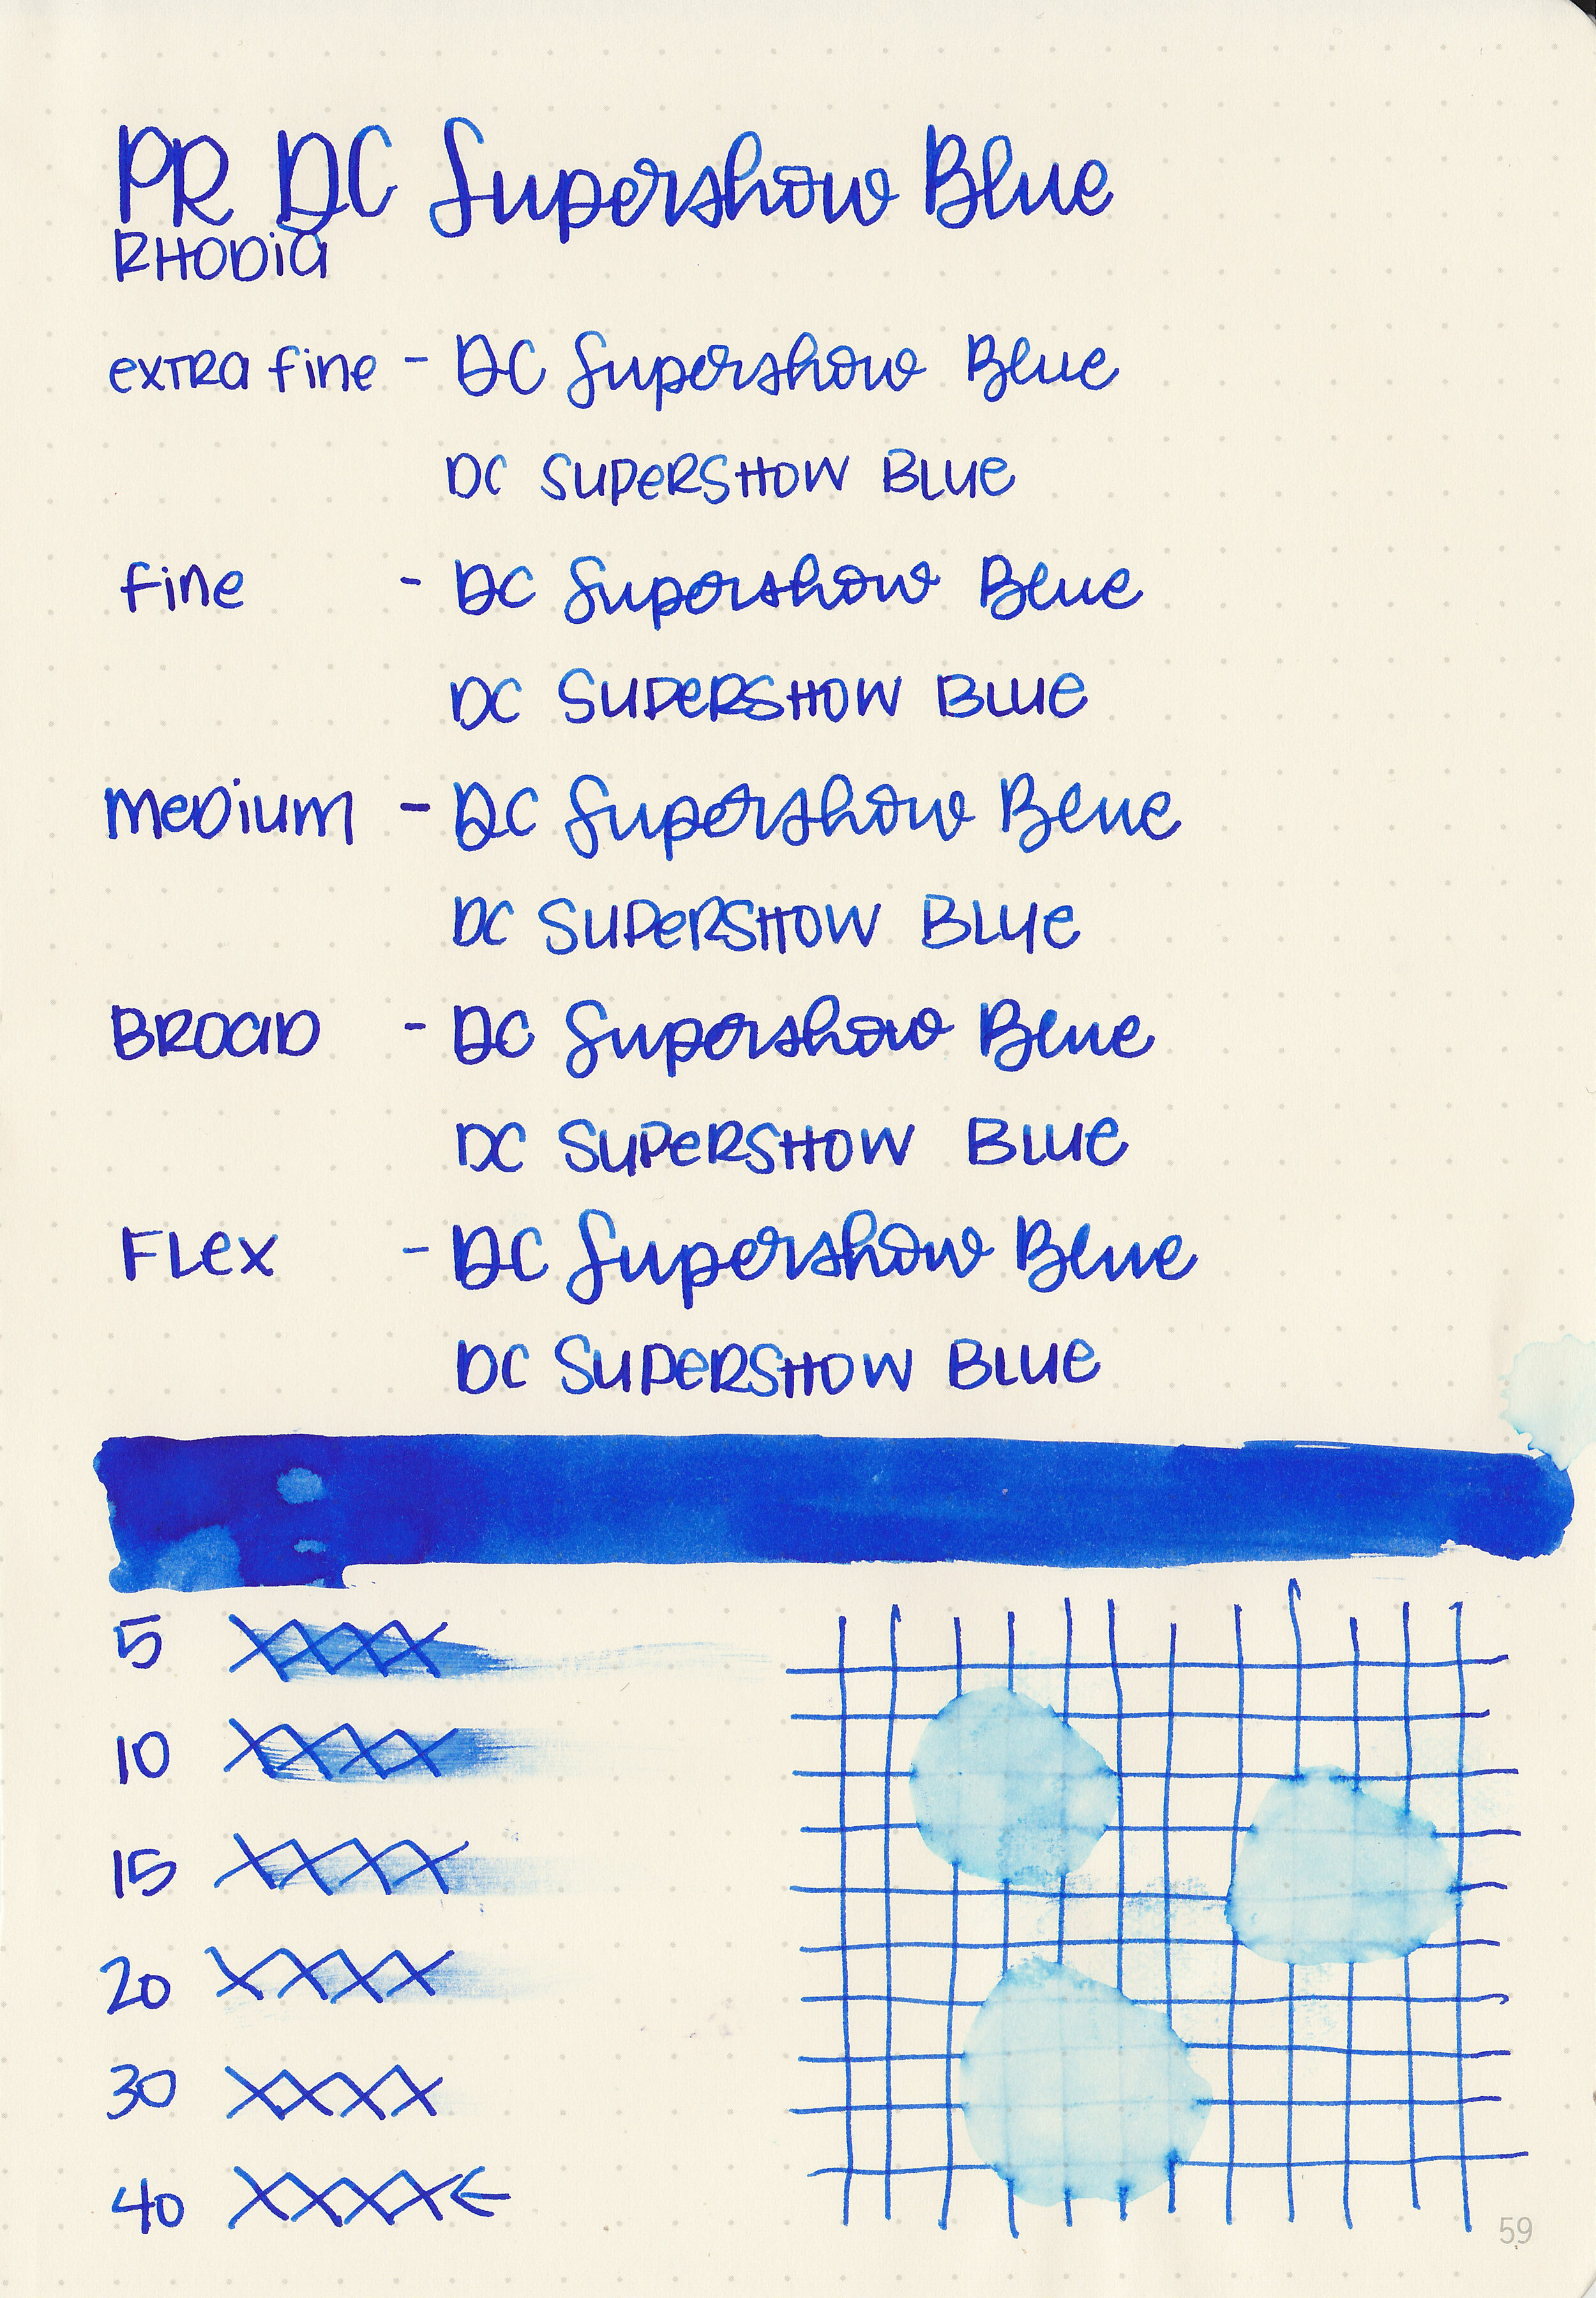 PR DC Supershow Blue
RHODIA
extra fine - DC Supershow Blue
DC SUPERSHOW BLUE
fine - DC Supershow Blue
DC SUPERSHOW BLUE
MEDIUM - DC Supershow Blue
DC SUPERSHOW BLUE
BROAD - DC Supershow Blue
DC SUPERSHOW BLUE
FLEX - DC Supershow Blue
DC SUPERSHOW BLUE
5 XXXX
10 XXXX
15 XXXX
20 XXXX
30 XXXX
40 XXXX ←
59